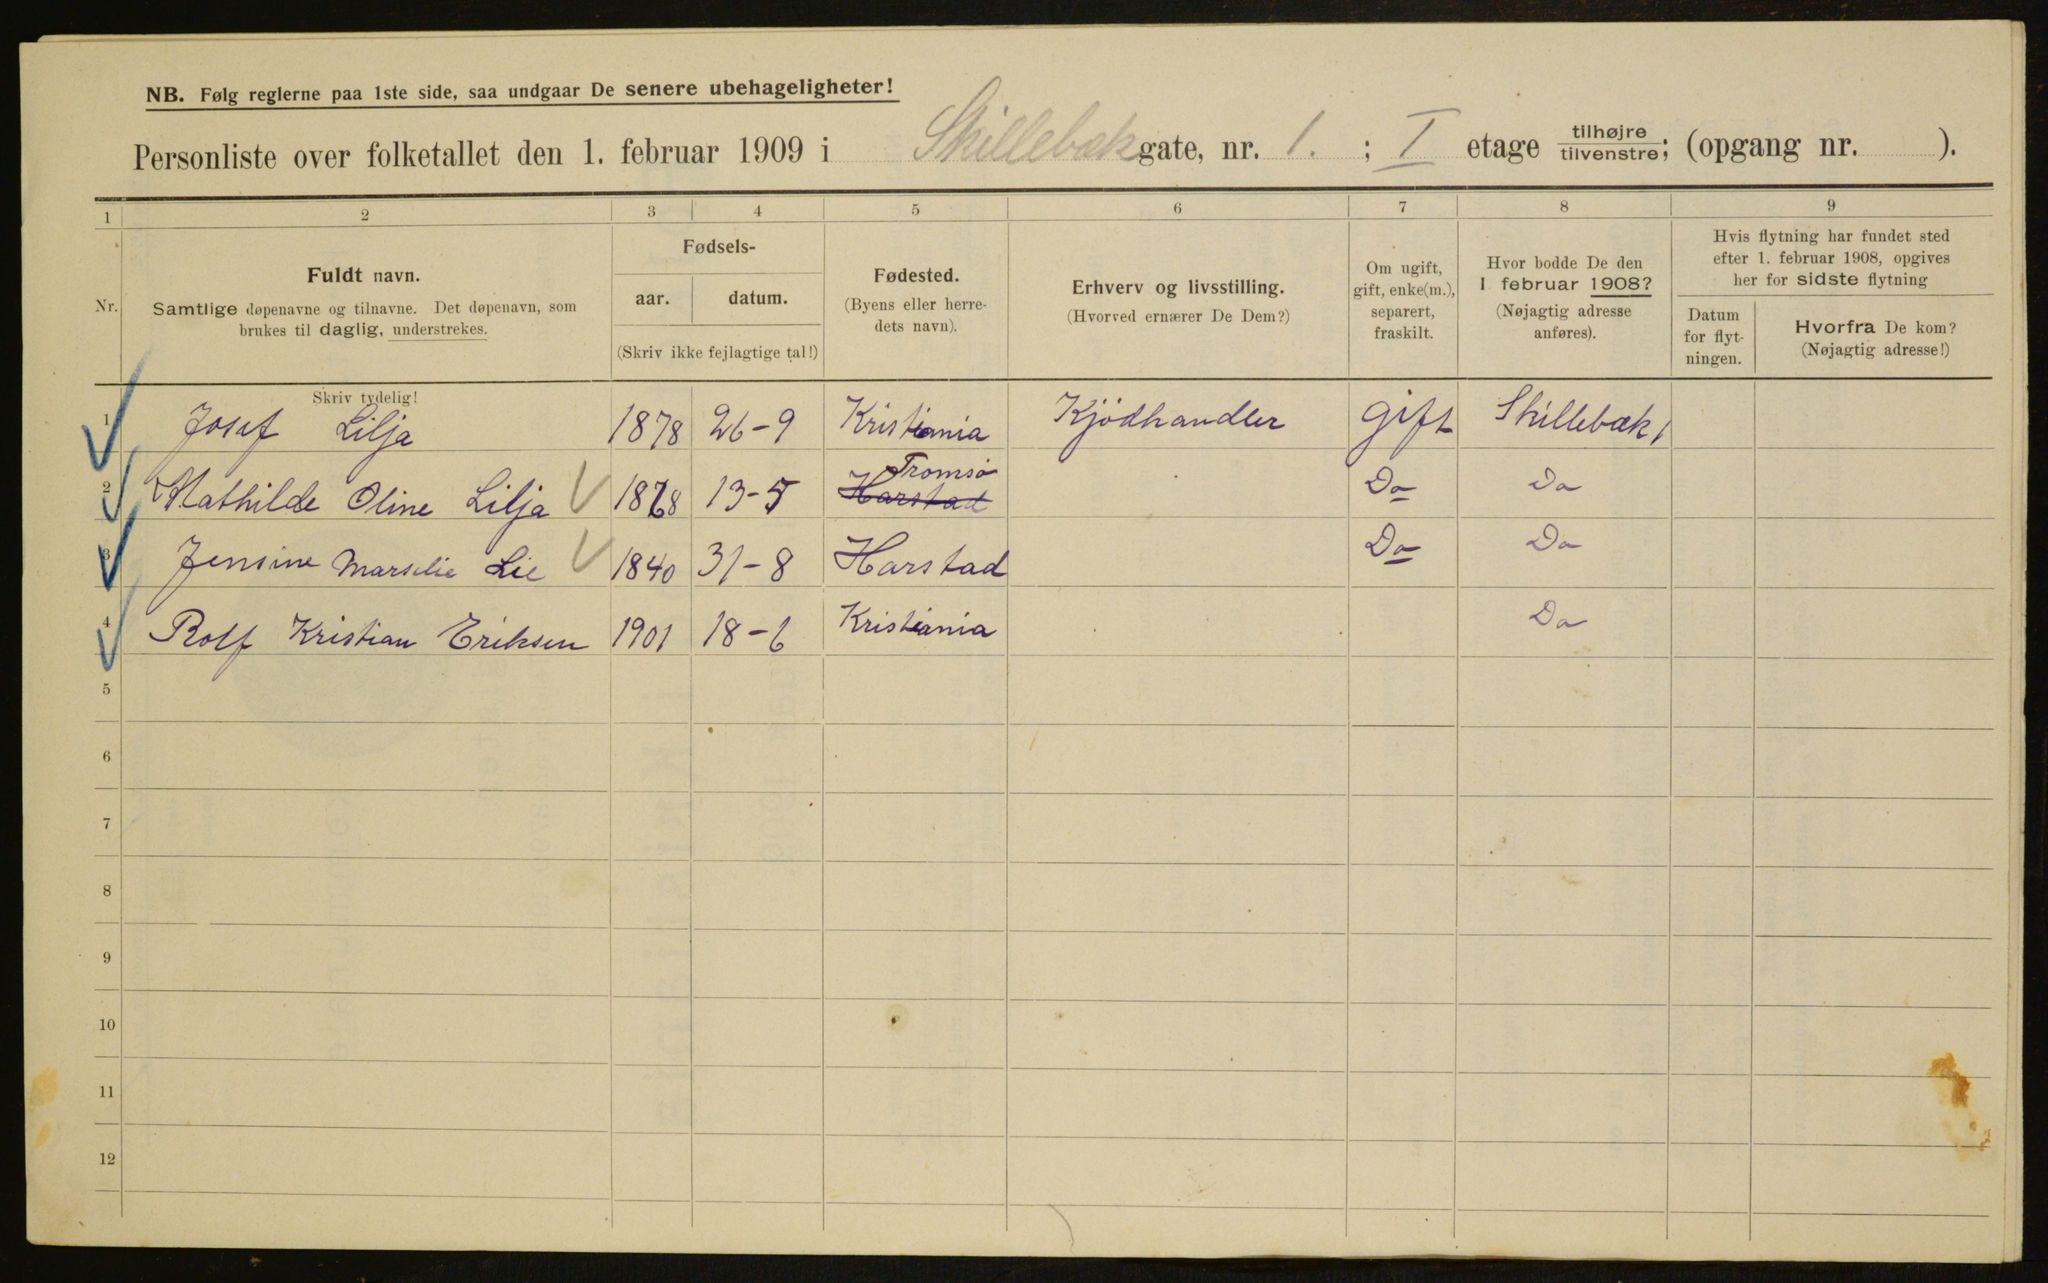 NB. Følg reglerne paa 1ste side, saa undgaar De senere ubehageligheter!
Personliste over folketallet den 1. februar 1909 i Skillebækgate, nr. 1. ; I etage tilhøjre tilvenstre; (opgang nr. ).
1 2 3 4 5 6 7 8 9
Nr.
Fuldt navn.
Samtlige døpenavne og tilnavne. Det døpenavn, som
brukes til daglig, understrekes.
Fødsels-
aar. datum.
(Skriv ikke fejlagtige tal!)
Fødested.
(Byens eller herre-
dets navn).
Erhverv og livsstilling.
(Hvorved ernærer De Dem?)
Om ugift,
gift, enke(m.),
separert,
fraskilt.
Hvor bodde De den
1 februar 1908?
(Nøjagtig adresse
anføres).
Hvis flytning har fundet sted
efter 1. februar 1908, opgives
her for sidste flytning
Datum
for flyt-
ningen.
Hvorfra De kom?
(Nøjagtig adresse!)
Skriv tydelig!
1 Josef Lilja 1878 26-9 Kristiania Kjödhandler Gift Skillebæk 1
Tromsö
2 Mathilde Oline Lilja 13-5 Harstad Do Do
3 Jensine Marselie Lie 1840 31-8 Harstad Do Do
4 Rolf Kristian Eriksen 1901 18-6 Kristiania Do
5
6
7
8
9
10
11
12